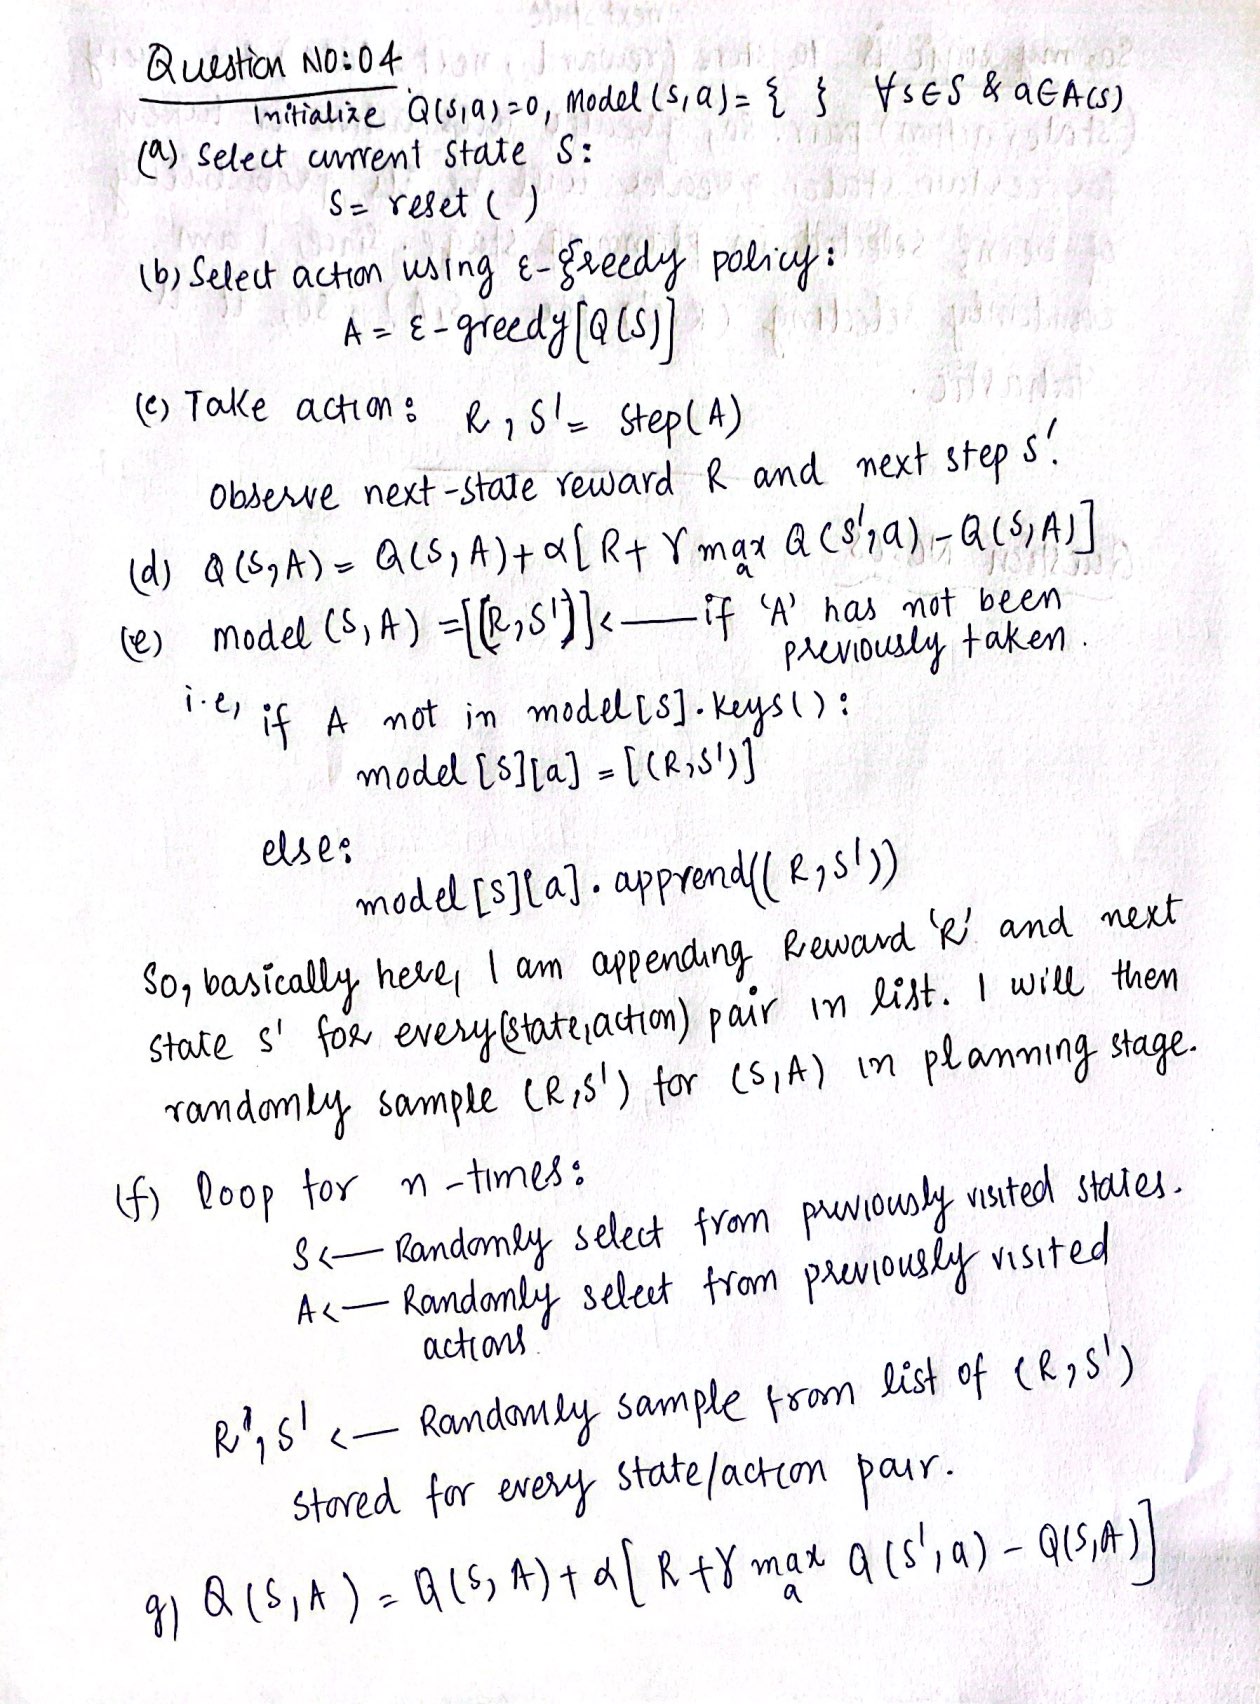 Question NO:04
Initialize Q(s,a)=0, Model(s,a)= { } ∀s∈S & a∈A(s)
(a) Select current state S:
S= reset ( )
(b) Select action using ε-greedy policy:
A = ε-greedy[Q(S)]
(c) Take action: R, S'= Step(A)
Observe next-state reward R and next step S'.
(d) Q(S,A)= Q(S,A)+α[R+γ max Q(S',a)-Q(S,A)]
a
(e) model (S,A) =[(R,S')]<—if 'A' has not been
previously taken.
i.e, if A not in model[S].keys():
model [S][a] = [(R,S')]
else:
model [S][a]. apprend((R,S'))
So, basically here, I am appending Reward 'R' and next
state s' for every(state,action) pair in list. I will then
randomly sample (R,S') for (S,A) in planning stage.
(f) loop for n-times:
S<— Randomly select from previously visited states.
A<— Randomly select from previously visited
actions
R', S' <— Randomly sample from list of (R,S')
stored for every state/action pair.
g) Q(S,A) = Q(S,A)+α[R+γ max Q(S',a) - Q(S,A)]
a